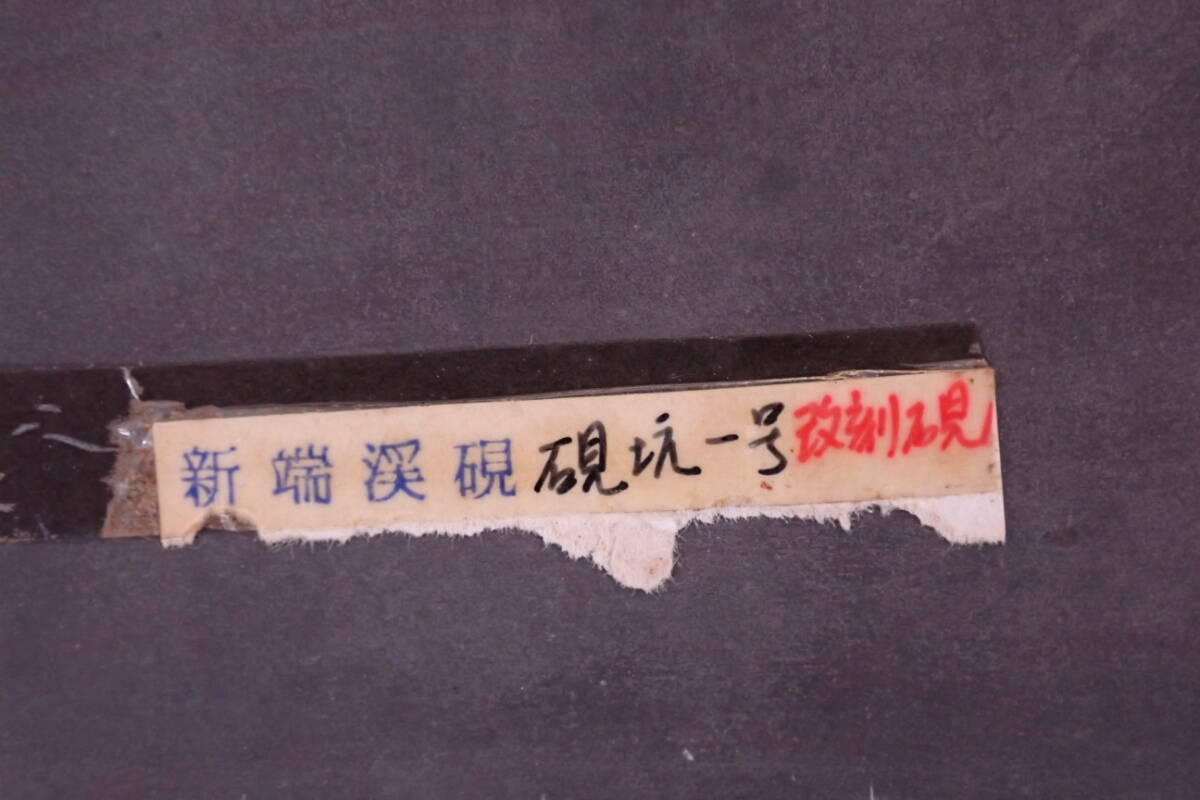 新端溪硯 硯坑一号 改刻硯